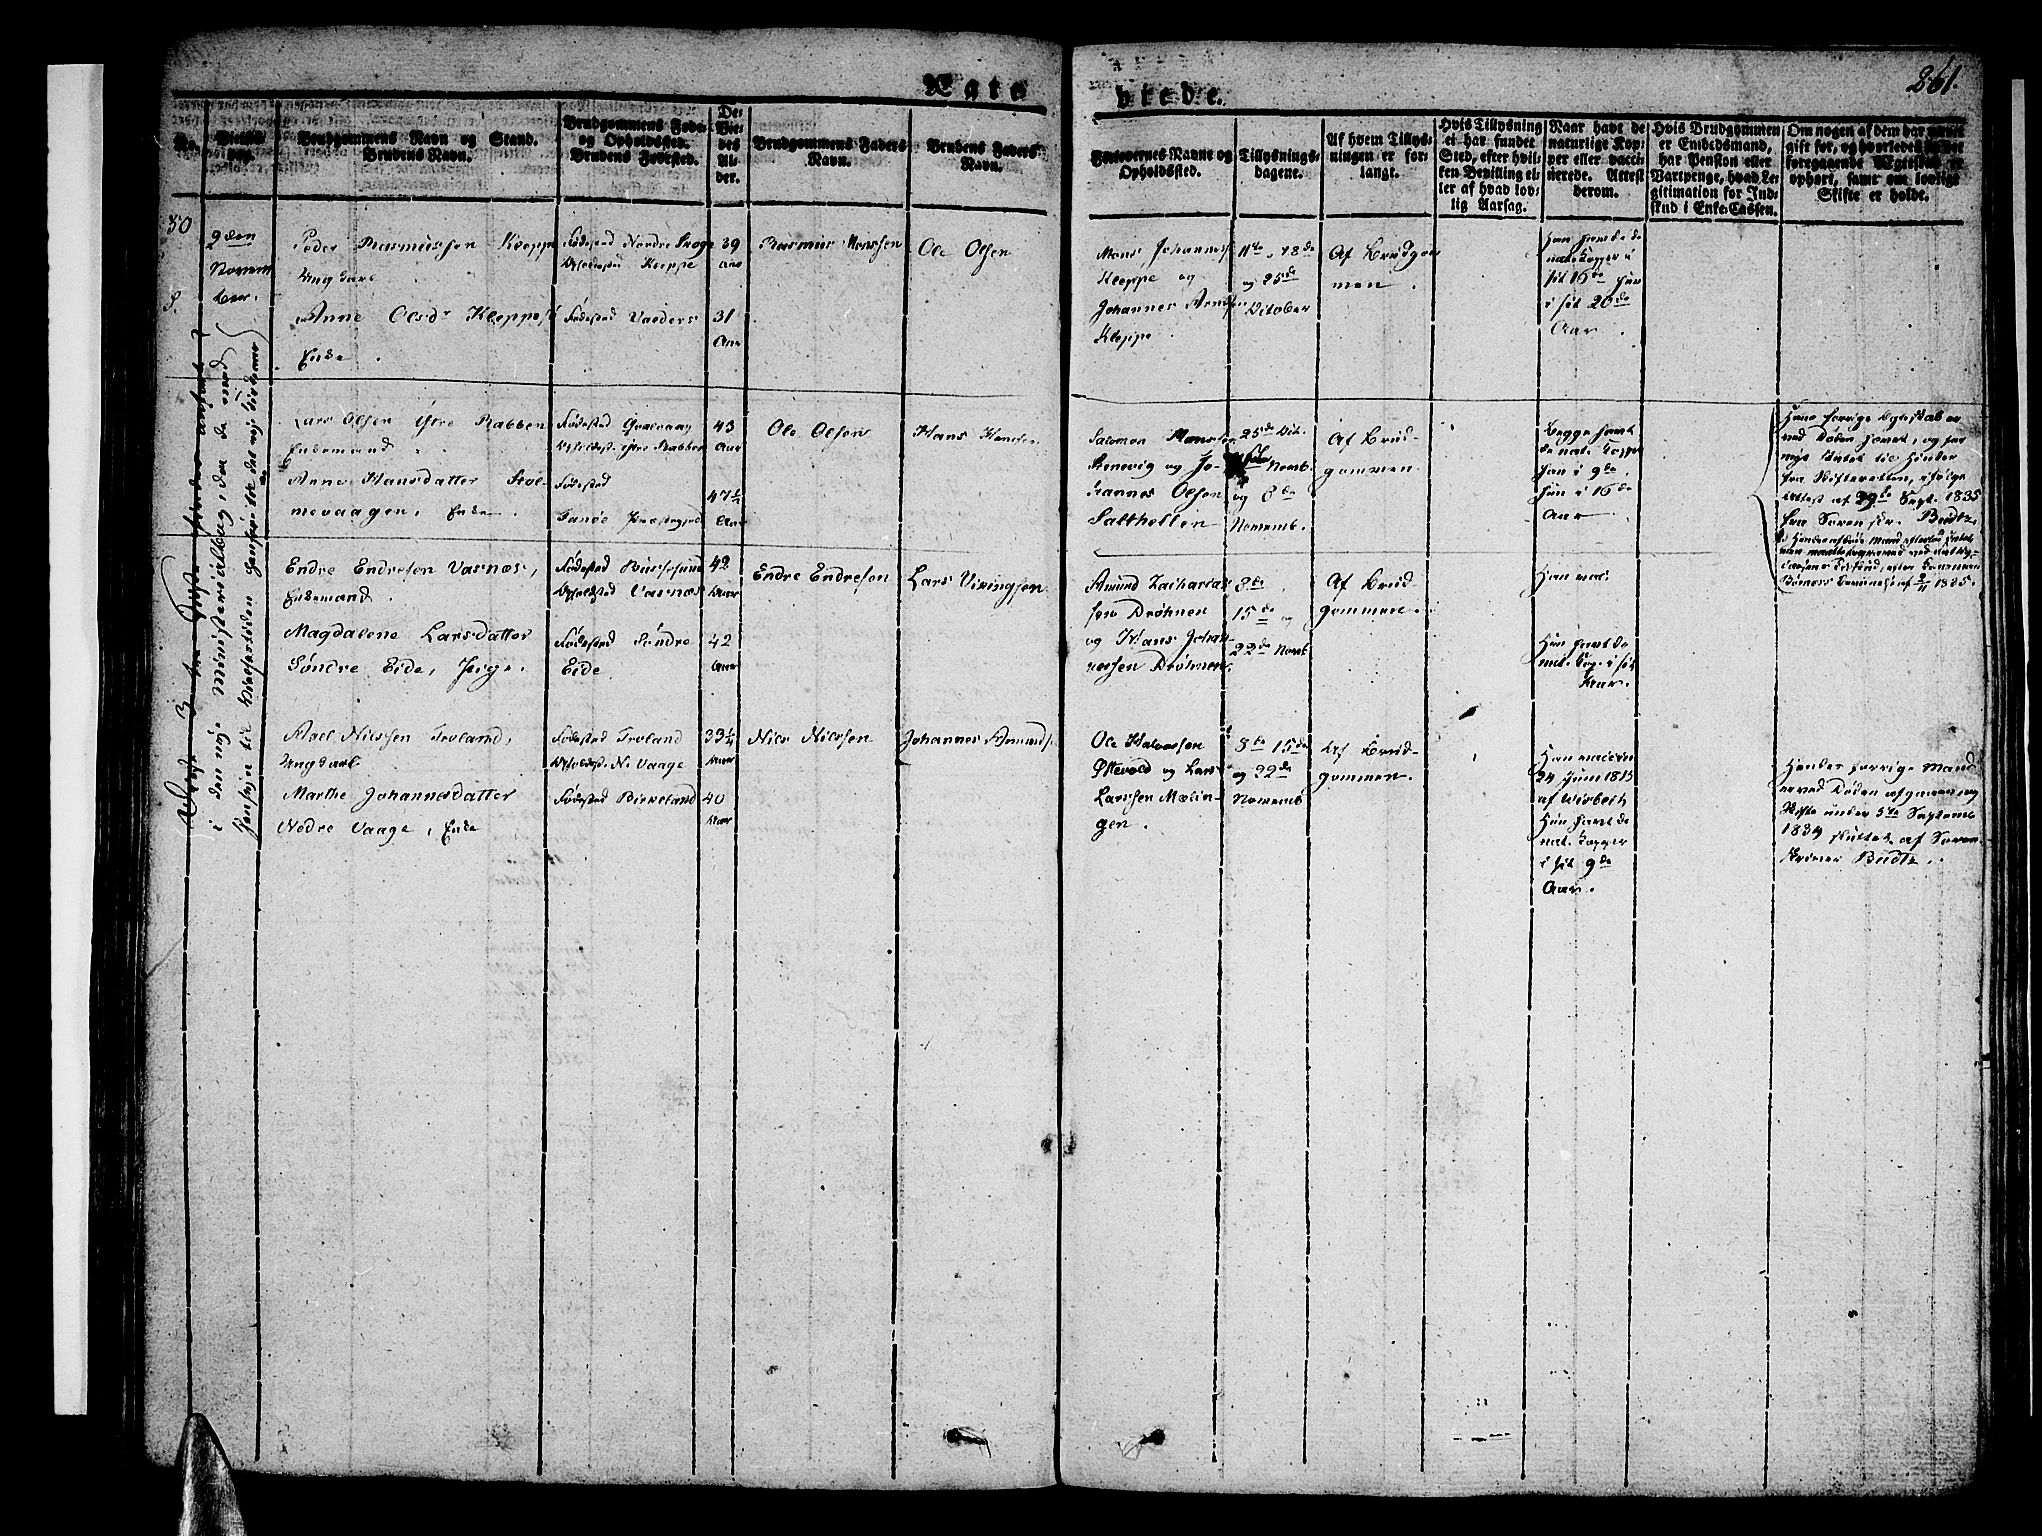 261.
Copu-
lerede.
No.
Vielses-
dag.
Brudgommens Navn og Stand.
Brudens Navn.
Brudgommens Føde-
og Opholdssted.
Brudens Fødested.
De
Vie-
des
Al-
der.
Brudgommens Faders
Navn.
Brudens Faders
Navn.
Forlovernes Navne og
Opholdssted.
Tillysnings-
dagene.
Af hvem Tillys-
ningen er for-
langt.
Hvis Tillysning
ei har fundet
Sted, efter hvil-
ken Bevilling el-
ler af hvad lov-
lig Aarsag.
Naar havt de
naturlige Kop-
per eller vacci-
nerede. Attest
derom.
Hvis Brudgommen
er Embedsmand,
har Pension eller
Vartpenge, hvad Le-
gitimation for Ind-
skud i Enke-Cassen.
Om nogen af dem har været
gift før, og hvorledes det
foregaaende Ægteskab er
ophørt, samt om lovligt
Skifte er holdt.
30
9den
Novem
ber.
Peder Rasmussen Kleppe
Ungkarl
Anne Olsdr Kleppe
Enke.
Fødested Nordre
Opholdsted Kleppe
Fødested
39
Aar
31
Aar
Rasmus Monssen
Ole Olsen
Mons Johannes
Kleppe og
Johannes
Kleppe.
11te, 18de
og 25de
October
Af Brudgom
men.
Han havde de
nat. Kopper i
sit 16de hun
i sit 20de
Aar.
Disse 3 tre
i den nye Ministerialbog, der de med
Hensyn til
Lars Olsen Øfre Rabben
Enkemand.
Anne Hansdatter
mevaagen, Enke.
Fødested
Opholdsted. Øfre Rabben
Fødested
Fanøe Præstegjeld
43
Aar
47½
Aar
Ole Olsen
Hans Hansen
Salomon Monssen
Steenevig og Jo-
hannes Olsen
Salthellen
25de Oct.
Novemb.
og 8de
Novemb.
Af Brud-
gommen.
Begge havt
de nat. Kopper
han i 9de
hun i 16de
Aar.
Hans forrige Ægteskab er
ved Døden hævet, og for
fra Skifteretten, ifølge
Attest af 29de Sept. 1835
fra Sorenskr. Budtz.
1835.
Endre Endresen Vasnæs,
Enkemand.
Magdalene Larsdatter
Søndre Eide, Pige.
Fødested
Opholdsted Vasnæs
Fødested Søndre
Eide.
42
Aar
42
Aar
Endre Endresen
Lars Vikingsen
Amund Zacharias
sen Drøhnen
og Hans Johan-
nessen Drøhnen.
8de
15de og
22de Novemb
Af Brud
gommen.
Han vac.
Hun havt de
nat. Kop. i sit
Aar.
Axel Nilssen Troland,
Ungkarl
Marthe Johannesdatter
Nedre Vaage, Enke
Fødested Troland
Opholdst. N. Vaage
Fødested Birkeland
33¼
Aar
40
Aar
Nils Nilssen
Johannes Amunds
Ole Halvorsen
Østevold og Lars
Larssen Mælin-
gen.
8de 15de
og 22de
Novemb
Af Brud-
gommen.
Han vaccin
24 Juni 1815
af Wisbech
Hun havt de
nat. Kopper
i sit 9de
Aar.
Hendes forrige Mand
er ved Døden afgaaen og
Skifte under 5te Septemb
1834 sluttet af Soren-
skriver Budtz.